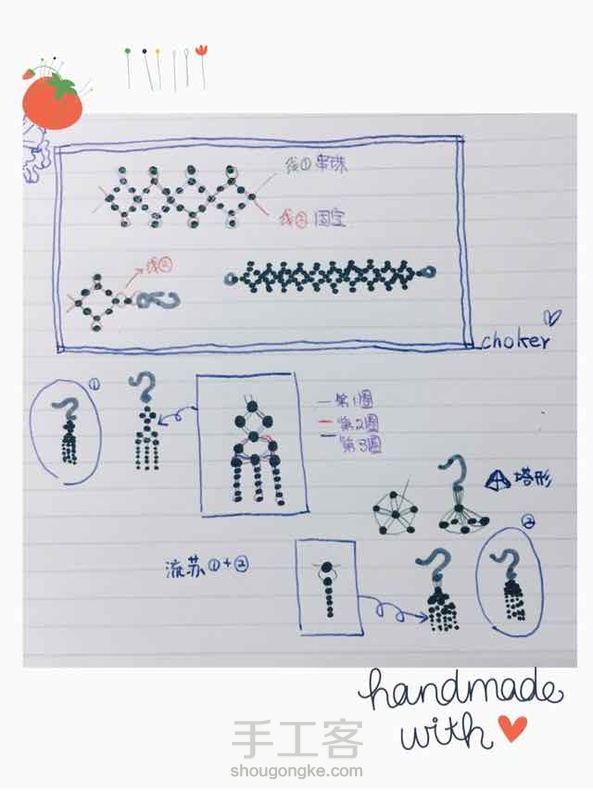 线① 串珠
线② 固定
线②
choker
①
第1圈
第2圈
第3圈
塔形
②
流苏①+②
handmade
with
手工客
shougongke.com